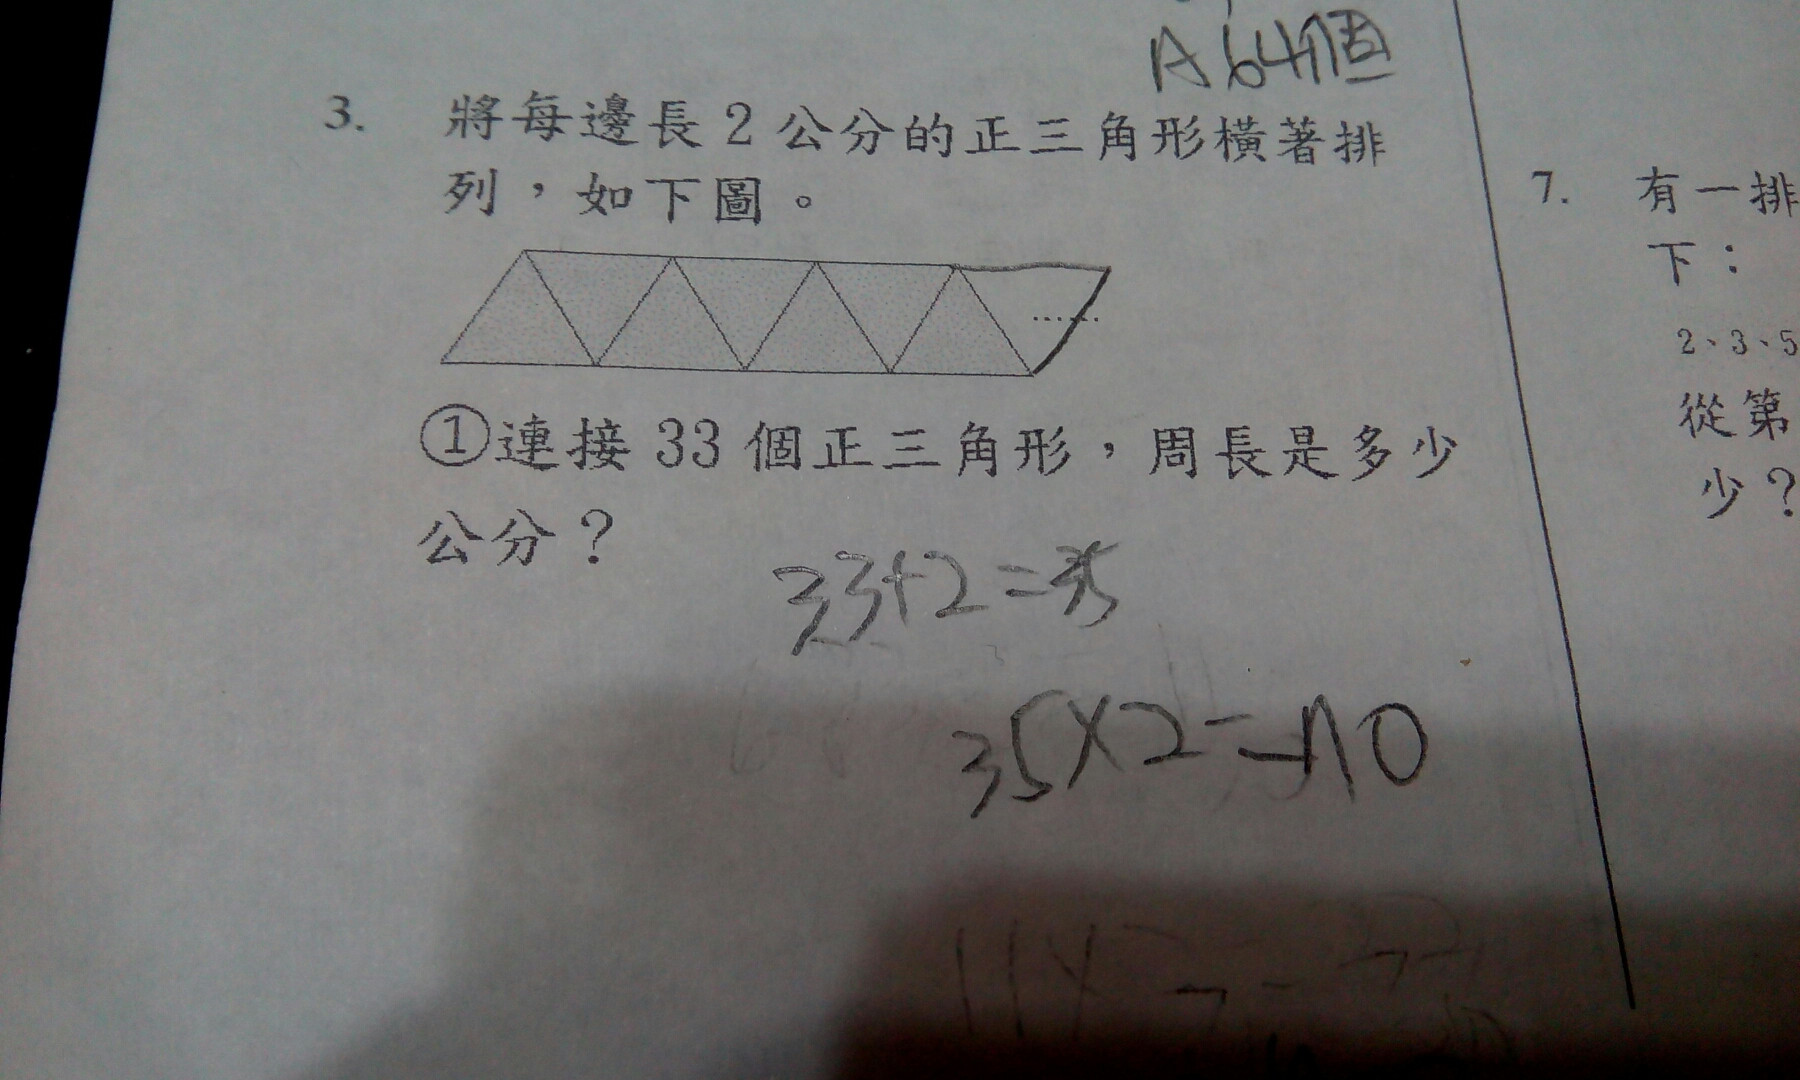 A 64個
3. 將每邊長2公分的正三角形橫著排
列，如下圖。
......
①連接33個正三角形，周長是多少
公分？
33+2=35
35×2=70
7. 有一排
下：
2、3、5
從第
少？